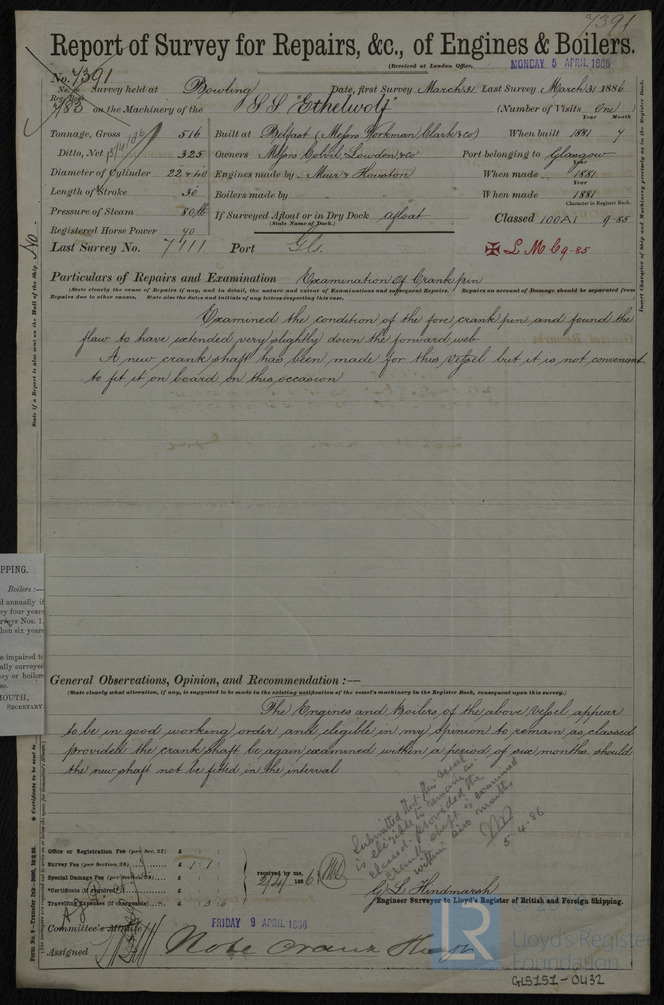 7391
Report of Survey for Repairs, &c., of Engines & Boilers.
(Received at London Office,
MONDAY 5 APRIL 1886
No. 7391
No. in Reg. Book
783
Survey held at Bowling Date, first Survey March 31 Last Survey March 31 1886
on the Machinery of the S.S. "Ethelwolf" (Number of Visits One)
Year Month
Tonnage, Gross 516
Built at Belfast (Messrs Workman, Clark & Co) When built 1881 7
Ditto, Net 325
15/4/86
Owners Messrs Colvil, Lowden & Co Port belonging to Glasgow
Diameter of Cylinder 22 & 40
Engines made by Muir & Houston When made 1881
Year
Length of Stroke 30
Boilers made by When made 1881
Pressure of Steam 80 lb
Character in Register Book.
If Surveyed Afloat or in Dry Dock afloat
(State Name of Dock.)
Classed 100A1 9-85
Registered Horse Power 90
Last Survey No. 7111 Port Gls.
✠ L M C 9-85
Particulars of Repairs and Examination Examination of Crank pin
(State clearly the cause of Repairs if any, and in detail, the nature and extent of Examinations and subsequent Repairs. Repairs on account of Damage should be separated from
Repairs due to other causes. State also the dates and initials of any letters respecting this case.
Examined the condition of the fore crank pin and found the
flaw to have extended very slightly down the forward web
A new crank shaft has been made for this vessel but it is not convenient
to fit it on board on this occasion
State if a Report is also sent on the Hull of the Ship. No.
Insert Character of Ship and Machinery precisely as in the Register Book.
PPING.
Boilers :—
d annually if
ry four years
rveys Nos. 1,
hen six years
be impaired
ally surveyed
ery or boilers
se.
MOUTH,
SECRETARY.
General Observations, Opinion, and Recommendation :—
(State clearly what alteration, if any, is suggested to be made in the existing notification of the vessel's machinery in the Register Book, consequent upon this survey.)
The Engines and Boilers of the above Vessel appear
to be in good working order and eligible in my opinion to remain as classed
provided the crank shaft be again examined within a period of six months should
the new shaft not be fitted in the interval
Submitted that this vessel
is eligible to remain as
classed provided the
crank shaft is examined
within six months
5.4.86
Office or Registration Fee (per Sec. 27) £ : :
Survey Fee (per Section 28) £ 1 : 1 :
Special Damage Fee (per Section 28) £ : :
*Certificate (if required) : :
Travelling Expenses (if chargeable) : 3 6
received by me,
2/4/1886
G. L. Hindmarsh
Engineer Surveyor to Lloyd's Register of British and Foreign Shipping.
Committee's Minute
FRIDAY 9 APRIL 1886
Assigned Note Crank Shaft
LR
Lloyd's Register
Foundation
GLS151-0432